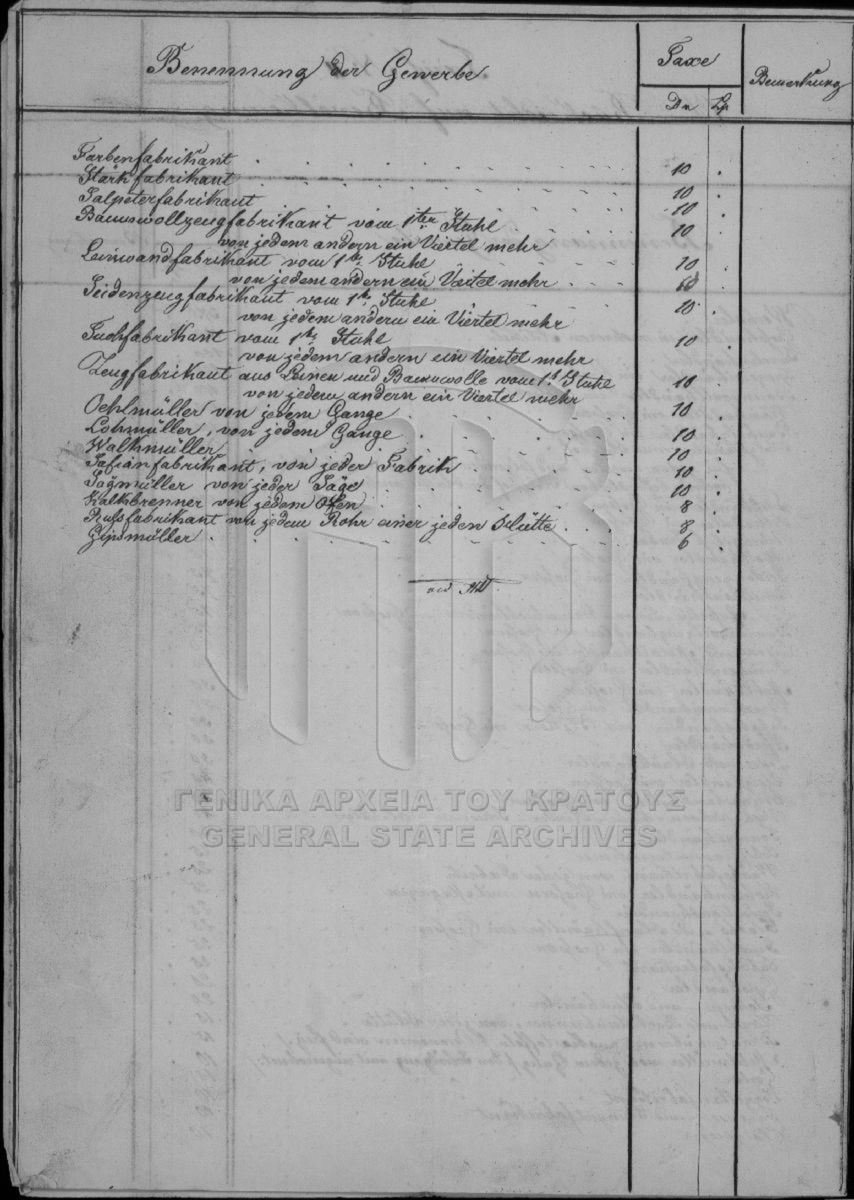 Benennung der Gewerbe
Taxe
Dr Lp
Bemerkung
Farbenfabrikant 10
Stärkfabrikant 10
Salpeterfabrikant 10
Baumwollzeugfabrikant vom 1ten Stuhl 10
von jedem andern ein Viertel mehr
Leinwandfabrikant vom 1ten Stuhle 10
von jedem andern ein Viertel mehr
Seidenzeugfabrikant vom 1ten Stuhle 10
von jedem andern ein Viertel mehr
Tuchfabrikant vom 1ten Stuhle 10
von jedem andern ein Viertel mehr
Zeugfabrikant aus Leinen und Baumwolle vom 1t Stuhl 10
von jedem andern ein Viertel mehr
Oehlmüller von jedem Gange 10
Lohmüller, von jedem Gange 10
Walkmüller 10
Safianfabrikant, von jeder Fabrik 10
Sagmüller von jeder Säge 10
Kalkbrenner von jedem Ofen 8
Rußfabrikant von jedem Rohr einer jeden Hütte 8
Gipsmüller 6
ΓΕΝΙΚΑ ΑΡΧΕΙΑ ΤΟΥ ΚΡΑΤΟΥΣ
GENERAL STATE ARCHIVES